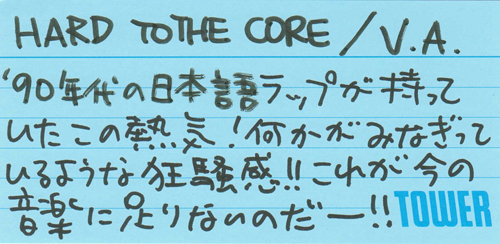 HARD TO THE CORE / V.A.
'90年代の日本語ラップが持って
いたこの熱気!何かがみなぎって
いるような狂騒感!!これが今の
音楽に足りないのだー!!
TOWER